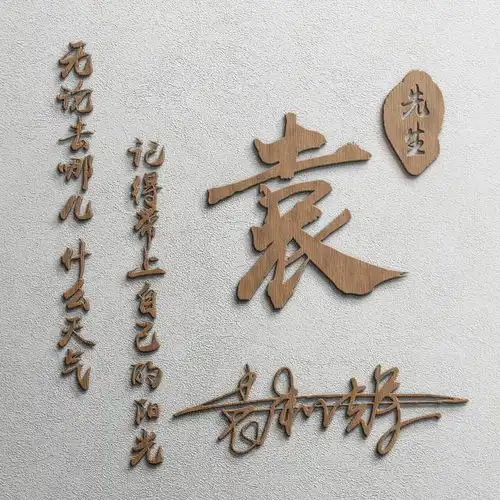 无论去哪儿 什么天气
记得带上自己的阳光
袁
先生